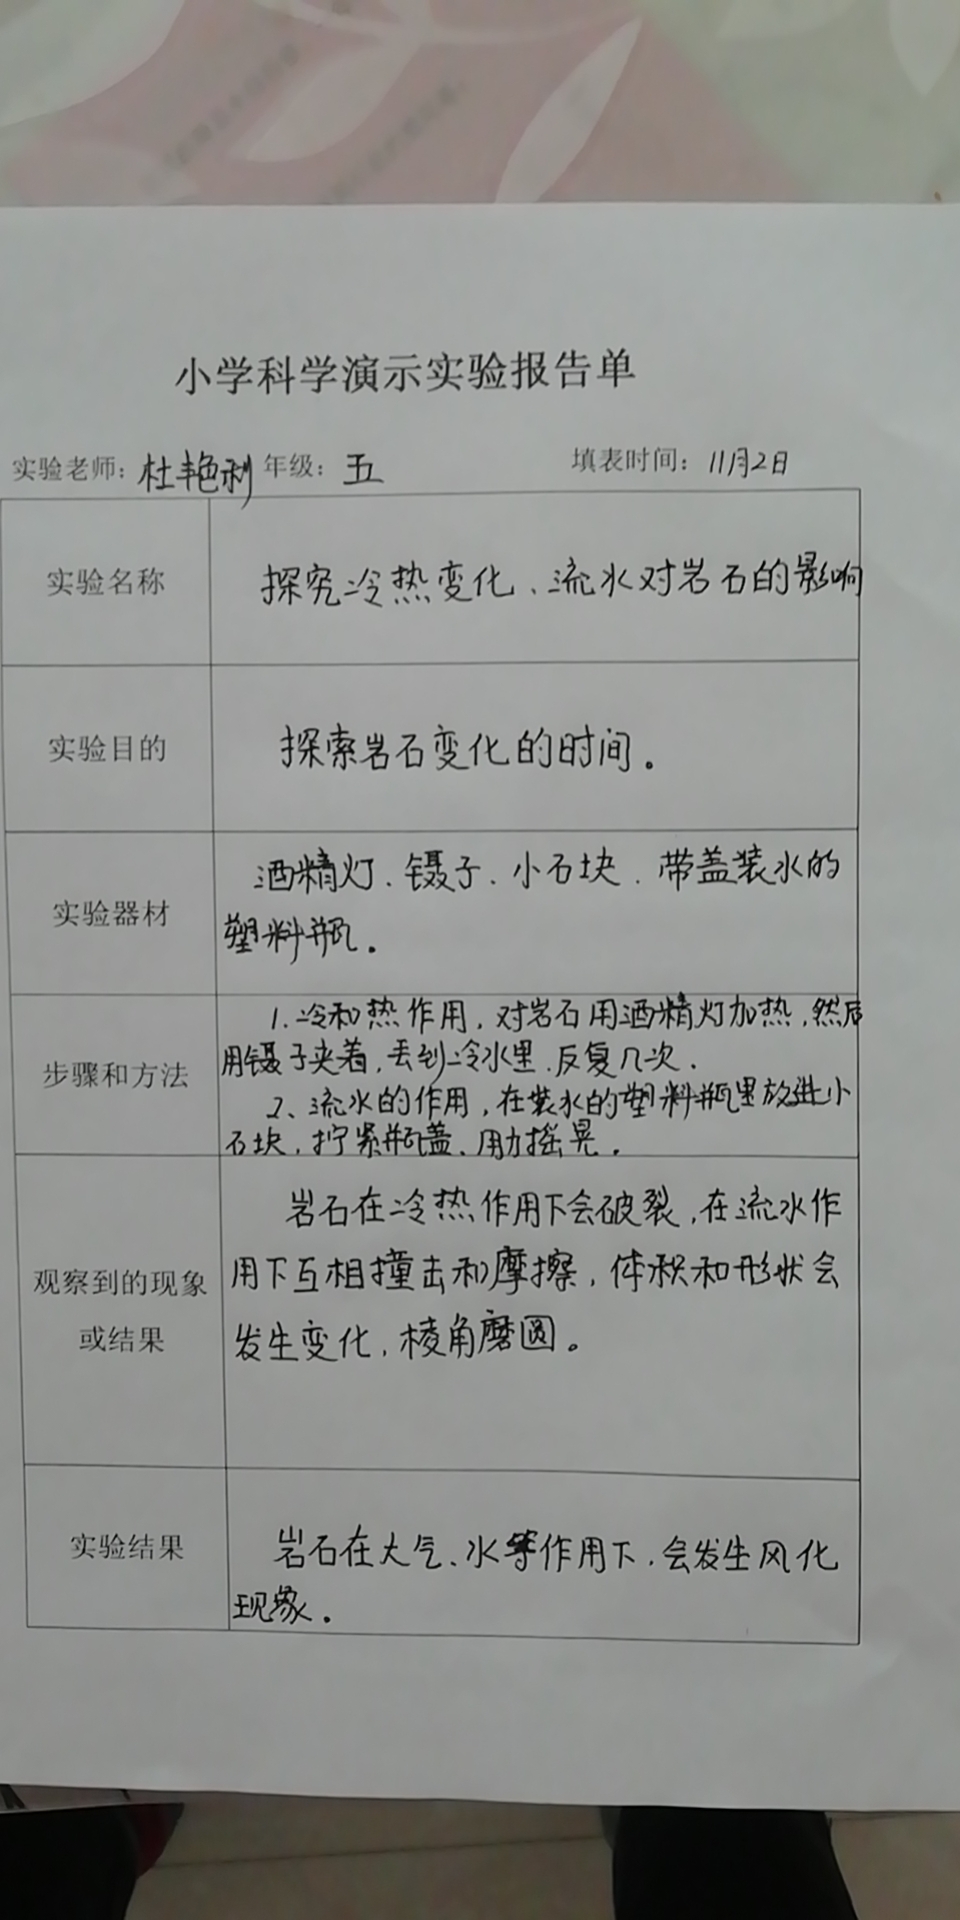 小学科学演示实验报告单
实验老师：杜艳利 年级：五 填表时间：11月2日
实验名称
探究冷热变化、流水对岩石的影响
实验目的
探索岩石变化的时间。
实验器材
酒精灯、镊子、小石块、带盖装水的
塑料瓶。
步骤和方法
1.冷和热作用，对岩石用酒精灯加热，然后
用镊子夹着，丢到冷水里、反复几次．
2、流水的作用，在装水的塑料瓶里放进小
石块，拧紧瓶盖、用力摇晃．
观察到的现象
或结果
岩石在冷热作用下会破裂，在流水作
用下互相撞击和摩擦，体积和形状会
发生变化，棱角磨圆。
实验结果
岩石在大气、水等作用下，会发生风化
现象。